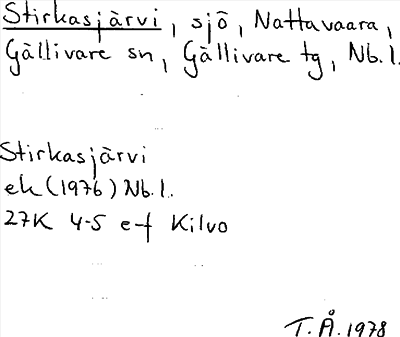 Stirkasjärvi, sjö, Nattavaara,
Gällivare sn, Gällivare tg, Nb.l.
Stirkasjärvi
ek (1976) Nb.l.
27K 4-5 e-f Kilvo
T.Å. 1978